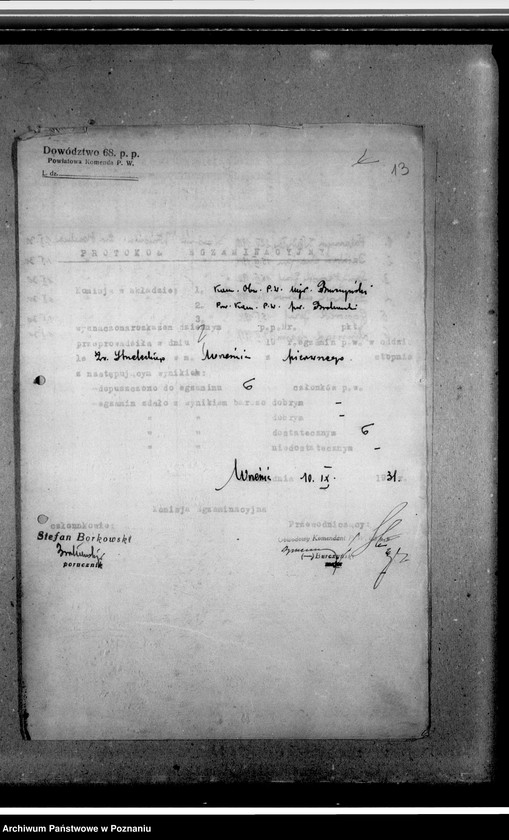 Dowództwo 68. p. p.
Powiatowa Komenda P. W.
L. dz.
13
PROTOKOŁ EGZAMINACYJNY
Komisja w składzie: 1. Kom. Obw. P.W. mjr.
2. Pow. Kom. P.W. por.
3.
wyznaczona rozkazem dziennym p.p. Nr. pkt.
przeprowadziła w dniu 19 r. egzamin p.w. w oddzi.
Zw. Strzeleckiego w m. Wrześni z pierwszego stopnia
z następującym wynikiem:
-dopuszczono do egzaminu 6 członków p.w.
-egzamin zdało z wynikiem bardzo dobrym -
" " dobrym -
" " dostatecznym 6
" " niedostatecznym -
Września dnia 10. IX. 1931.
Komisja Egzaminacyjna
członkowie: Przewodniczący:
Stefan Borkowski
porucznik
Obwodowy Komendant
Archiwum Państwowe w Poznaniu